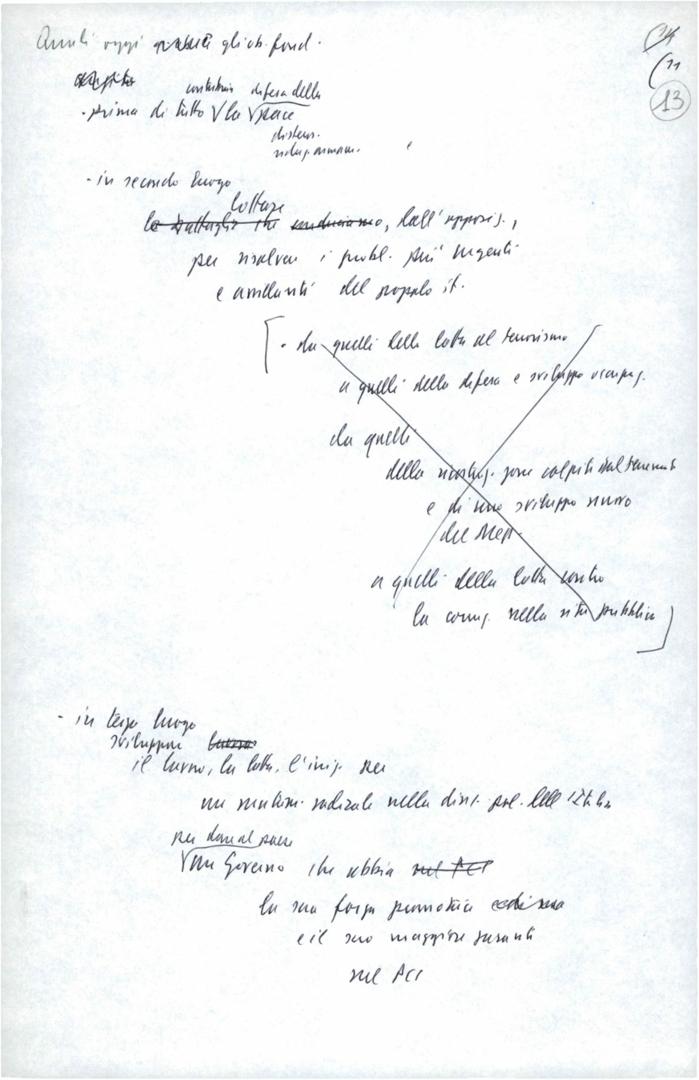 Quali oggi gli ob. fond.
13
11
contributo difesa della
- prima di tutto la pace
disten.
- in secondo luogo
lottare
la battaglia che conduciamo, dall'opposiz.,
per risolvere i probl. più urgenti
e assillanti del popolo it.
- da quelli della lotta al terrorismo
a quelli della difesa e sviluppo occupaz.
da quelli
della ricostruz. zone colpite dal terremoto
e di uno sviluppo nuovo
del Mezz.
a quelli della lotta contro
la corruz. nella vita pubblica
- in terzo luogo
sviluppare
il lavoro, la lotta, l'iniz. per
un mutam. radicale nella direz. pol. dell'Italia
per dare al paese
un Governo che abbia nel PCI
la sua forza promotrice
e il suo maggiore garante
nel PCI